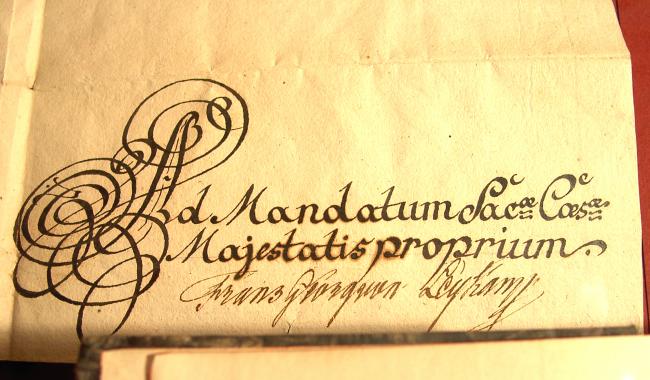 Ad Mandatum Sac.ae Caes.ae
Majestatis proprium.
Franz Georg von Leykam